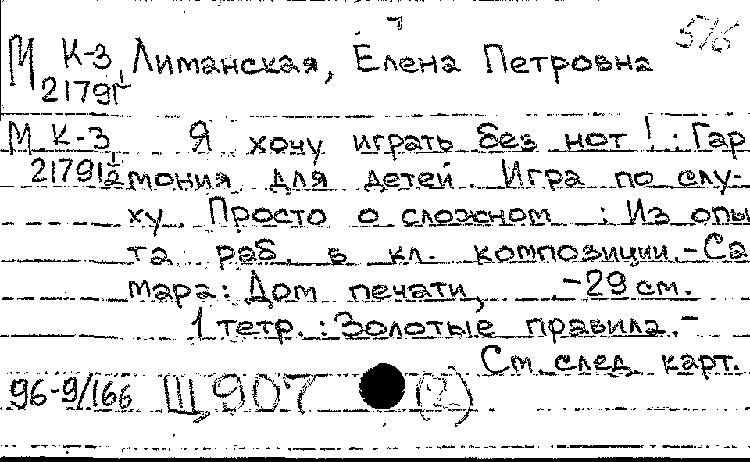 516
М К-3 Лиманская, Елена Петровна
21791 1
М К-3 Я хочу играть без нот! : Гар
21791 1/2 мония для детей. Игра по слу-
ху. Просто о сложном : Из опы
та раб. в кл. композиции. - Са
мара: Дом печати, -29 см.
1 тетр.: Золотые правила. -
См. след. карт.
96-9/166 Щ907 (2)